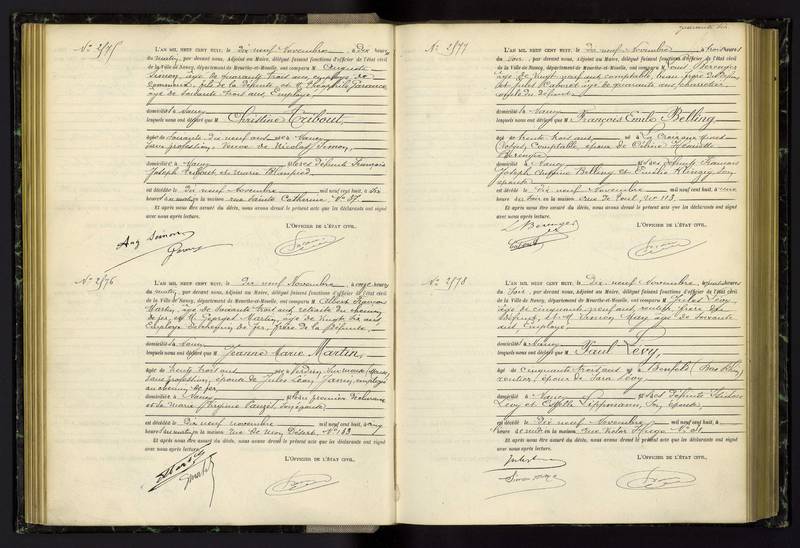 N° 2175
L'AN MIL NEUF CENT HUIT, le dix neuf Novembre, à Dix heures
du matin, par devant nous, Adjoint au Maire, délégué faisant fonctions d'officier de l'état civil
de la Ville de Nancy, département de Meurthe-et-Moselle, ont comparu M
Simon, âgé de quarante trois ans employé de
commerce, fils de la défunte et M
âgé de soixante trois ans Employé
domiciliés à Nancy
lesquels nous ont déclaré que M Christine Tribout,
âgée de soixante dix neuf ans née à Nancy
sans profession, veuve de Nicolas Simon,
domiciliée à Nancy fille des défunts François
Joseph Tribout et Marie Blanpied
est décédée le dix neuf Novembre mil neuf cent huit, à six
heures du matin en la maison rue Sainte Catherine N° 37
Et après nous être assuré du décès, nous avons dressé le présent acte que les déclarants ont signé
avec nous après lecture.
L'OFFICIER DE L'ÉTAT CIVIL,
Aug Simon
N° 2176
L'AN MIL NEUF CENT HUIT, le dix neuf Novembre, à onze heures
du matin, par devant nous, Adjoint au Maire, délégué faisant fonctions d'officier de l'état civil
de la Ville de Nancy, département de Meurthe-et-Moselle, ont comparu M Albert François
Martin, âgé de soixante trois ans, retraité du chemin
de fer, et M Georges Martin, âgé de vingt six ans
Employé de chemin de fer, frère de la défunte
domiciliés à Nancy
lesquels nous ont déclaré que M Jeanne Marie Martin,
âgée de trente trois ans née à Verdun, sur meuse
sans profession, épouse de Jules Léon employé
au chemin de fer
domiciliée à Nancy fille du premier déclarant
et de Marie son épouse
est décédée le dix neuf novembre mil neuf cent huit, à cinq
heures du matin en la maison rue du Mon Désert, N° 163
Et après nous être assuré du décès, nous avons dressé le présent acte que les déclarants ont signé
avec nous après lecture.
L'OFFICIER DE L'ÉTAT CIVIL,
N° 2177
L'AN MIL NEUF CENT HUIT, le dix neuf Novembre, à trois heures
du soir, par devant nous, Adjoint au Maire, délégué faisant fonctions d'officier de l'état civil
de la Ville de Nancy, département de Meurthe-et-Moselle, ont comparu M Louis Berenger
âgé de vingt neuf ans comptable, beau frère du défunt
et Jules âgé de quarante ans
du défunt
domiciliés à Nancy
lesquels nous ont déclaré que M François Emile Belling
âgé de trente trois ans né à La Croix aux mines
(Vosges) Comptable époux de Céline Henriette
Berenger
domicilié à Nancy fils des défunts François
Joseph Antoine Belling et Emélie Klingig son
épouse
est décédé le dix neuf Novembre mil neuf cent huit, à une
heure du soir en la maison rue de Toul, N° 113
Et après nous être assuré du décès, nous avons dressé le présent acte que les déclarants ont signé
avec nous après lecture.
L'OFFICIER DE L'ÉTAT CIVIL,
L Berenger
N° 2178
L'AN MIL NEUF CENT HUIT, le dix neuf Novembre, à heures
du soir, par devant nous, Adjoint au Maire, délégué faisant fonctions d'officier de l'état civil
de la Ville de Nancy, département de Meurthe-et-Moselle, ont comparu M Jules Lévy,
âgé de cinquante neuf ans, rentier, frère du
défunt, et M Simon May, âgé de soixante
ans Employé
domiciliés à Nancy
lesquels nous ont déclaré que M Paul Lévy,
âgé de cinquante trois ans né à Benfeld (Bas Rhin)
rentier, époux de Sara Lévy
domicilié à Nancy fils des défunts
Lévy et Lippmann, son épouse,
est décédé le dix neuf Novembre mil neuf cent huit, à
heures de midi en la maison rue Victor Hugo N° 31
Et après nous être assuré du décès, nous avons dressé le présent acte que les déclarants ont signé
avec nous après lecture.
L'OFFICIER DE L'ÉTAT CIVIL,